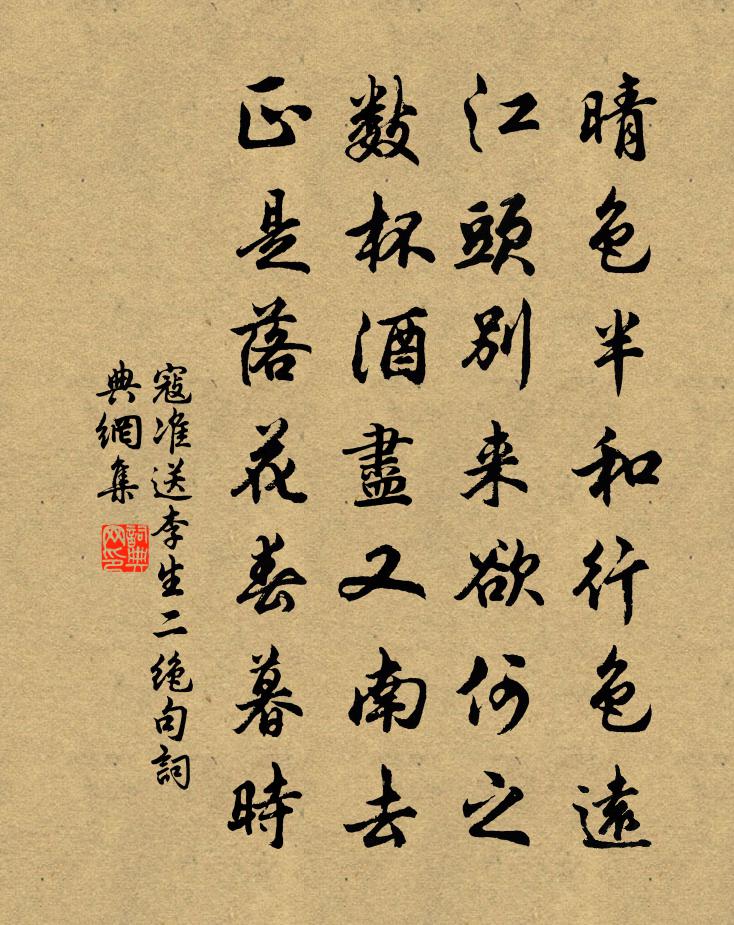 晴色半和行色遠
江頭別来欲何之
數杯酒盡又南去
正是落花春暮時
寇准送李生二絶句詞
典網集
詞典
网印